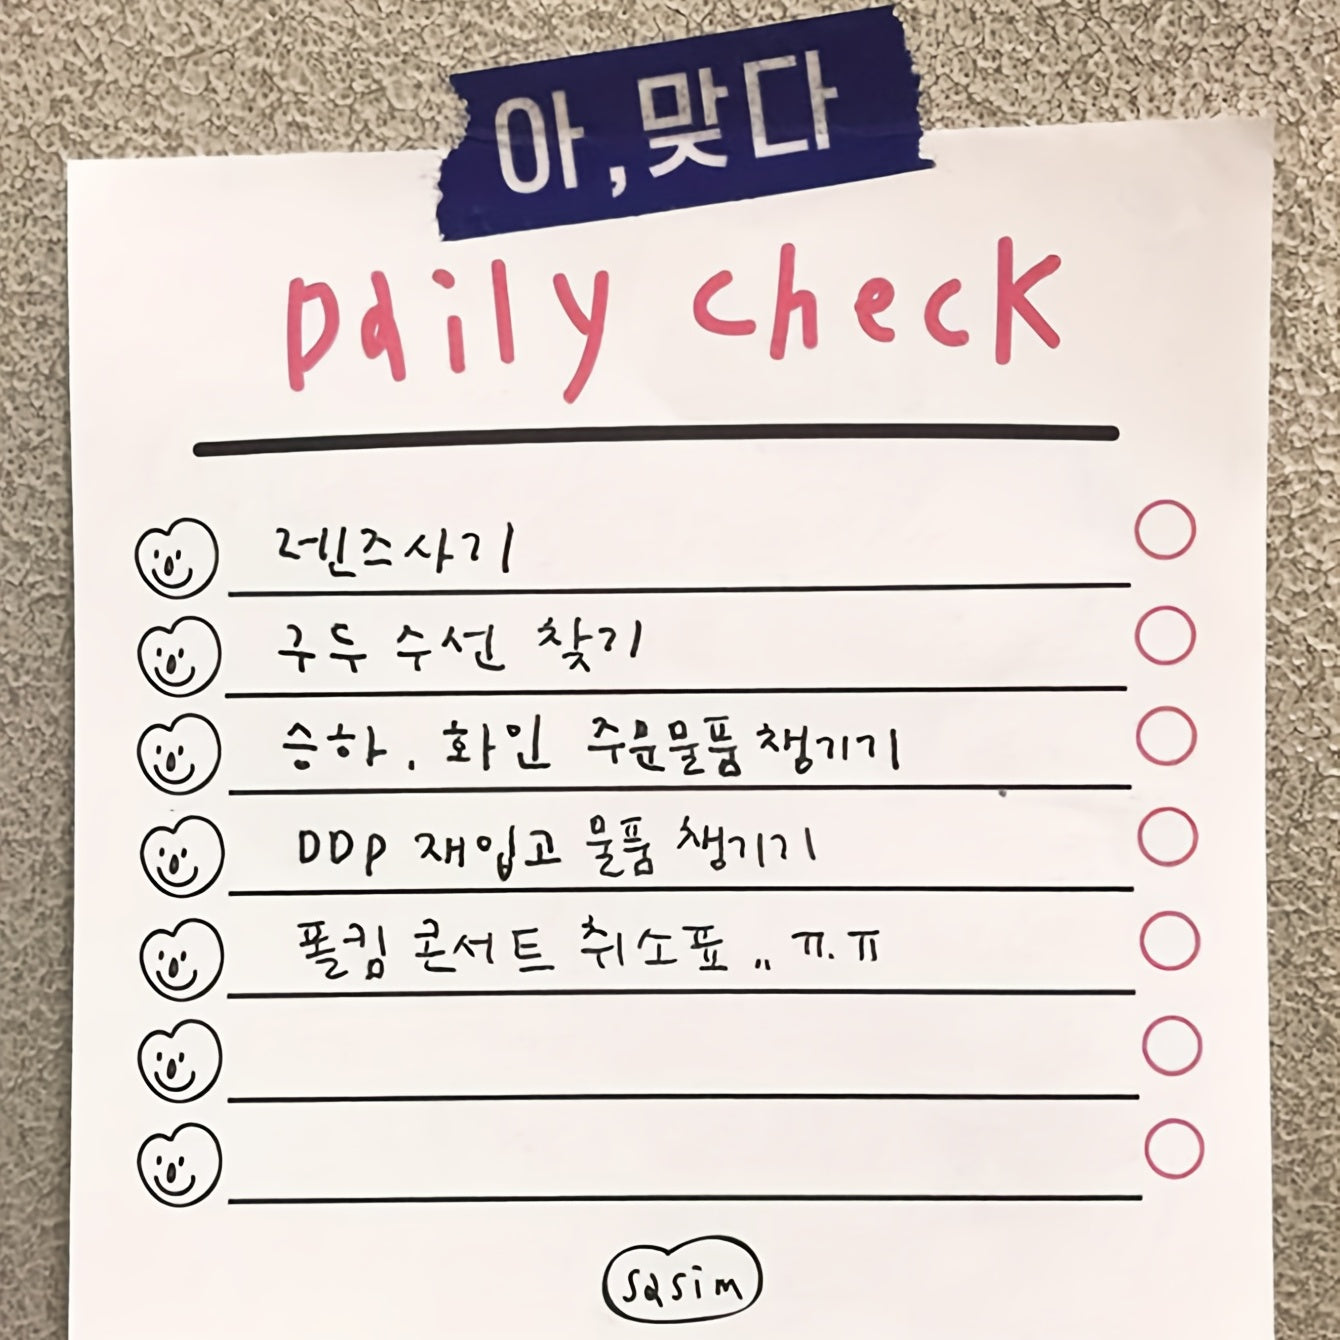 아, 맞다
Daily check
렌즈사기
구두 수선 찾기
승하. 화인 주문물품 챙기기
DDP 재입고 물품 챙기기
폴킴 콘서트 취소표.. ㅠ.ㅠ
sasim